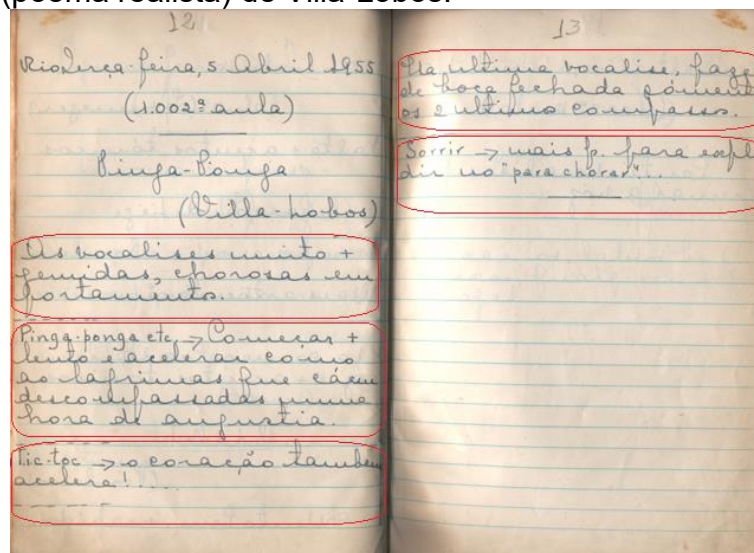 (poema realista) de Villa-Lobos.
12
Rio, terça-feira, 5 Abril 1955
(1.002ª aula)
Pinga-Ponga
(Villa-Lobos)
As vocalises muito +
gemidas, chorosas em
portamento.
Pinga-ponga etc. → Começar +
lento e acelerar como
as lagrimas que cáem
descompassadas numa
hora de angustia.
Tic-toc → o coração também
acelera!.....
13
Na ultima vocalise, faze
de boca fechada sómente
os 2 ultimo compasso.
Sorrir → mais p. para expl
dir no "para chorar"...